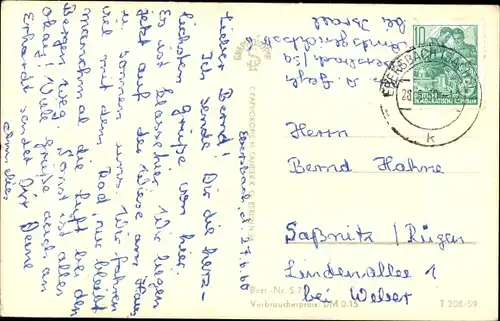 Ebersbach, d. 27.6.60
Lieber Bernd!
Ich sende Dir die herz-
lichsten Grüße von hier.
Es ist klasse hier. Wir liegen
jetzt auf der Wiese am Haus
u. sonnen uns. Wir fahren
viel mit dem Rad, nur bleibt
manchmal die Luft bei den
Bergen weg. Sonst ist alles
okay! Viele Grüße auch an
Erhardt sendet Dir Deine
Annelies
bei Israel
10
EBERSBACH
k
Herrn
Bernd Hahne
Saßnitz / Rügen
Lindenallee 1
bei Weber
Best.-Nr. S 7
Verbraucherpreis: DM 0.15
T 208/59